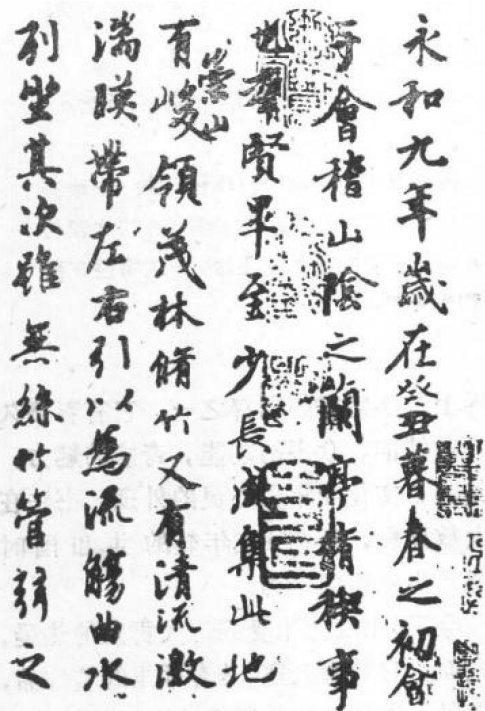 永和九年歲在癸丑暮春之初會
于會稽山陰之蘭亭脩禊事
也群賢畢至少長咸集此地
有崇山峻領茂林脩竹又有清流激
湍暎帶左右引以為流觴曲水
列坐其次雖無絲竹管弦之